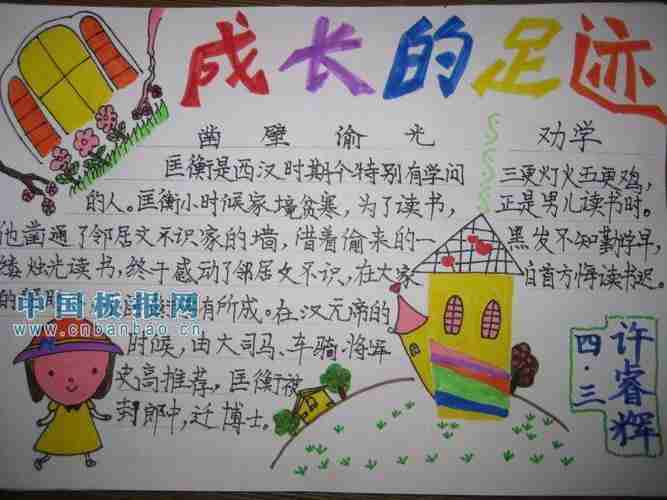 成长的足迹
凿壁偷光
匡衡是西汉时期个特别有学问
的人。匡衡小时候家境贫寒，为了读书，
他凿通了邻居文不识家的墙，借着偷来的一
缕烛光读书，终于感动了邻居文不识，在大家
的 有所成。在汉元帝的
时候，由大司马、车骑·将军
史高推荐，匡衡被
封郎中，迁博士。
劝学
三更灯火五更鸡，
正是男儿读书时。
黑发不知勤学早，
白首方悔读书迟。
四·三
许睿辉
中国板报网
www.cnbanbao.cn